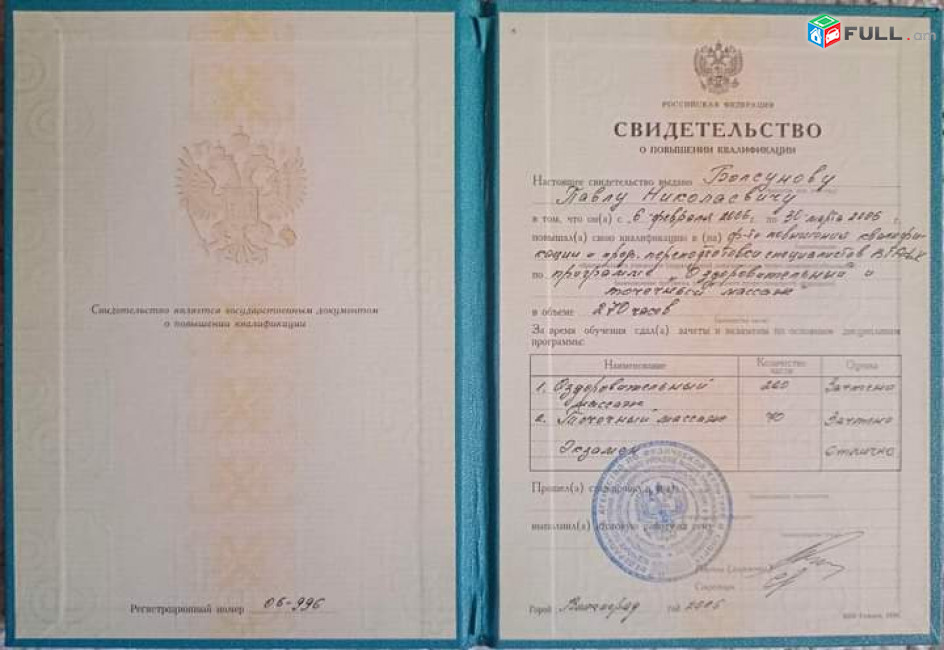 Свидетельство является государственным документом
о повышении квалификации
Регистрационный номер 06-996
FULL.am
РОССИЙСКАЯ ФЕДЕРАЦИЯ
СВИДЕТЕЛЬСТВО
О ПОВЫШЕНИИ КВАЛИФИКАЦИИ
Настоящее свидетельство выдано Болсунову
Павлу Николаевичу
в том, что он(а) с 6 февраля 2006 г. по 30 марта 2006 г.
повышал(а) свою квалификацию в (на) ф-те повышения квалифи-
кации и проф. переподготовки специалистов
по программе „Оздоровительный и
точечный массаж"
в объеме 270 часов
За время обучения сдал(а) зачеты и экзамены по основным дисциплинам
программы:
Наименование Количество часов Оценка
1. Оздоровительный массаж 200 Зачтено
2. Точечный массаж 70 Зачтено
Экзамен отлично
Прошел(а) стажировку в (на)
выполнил(а) итоговую работу на тему
Секретарь
Город Волгоград год 2006